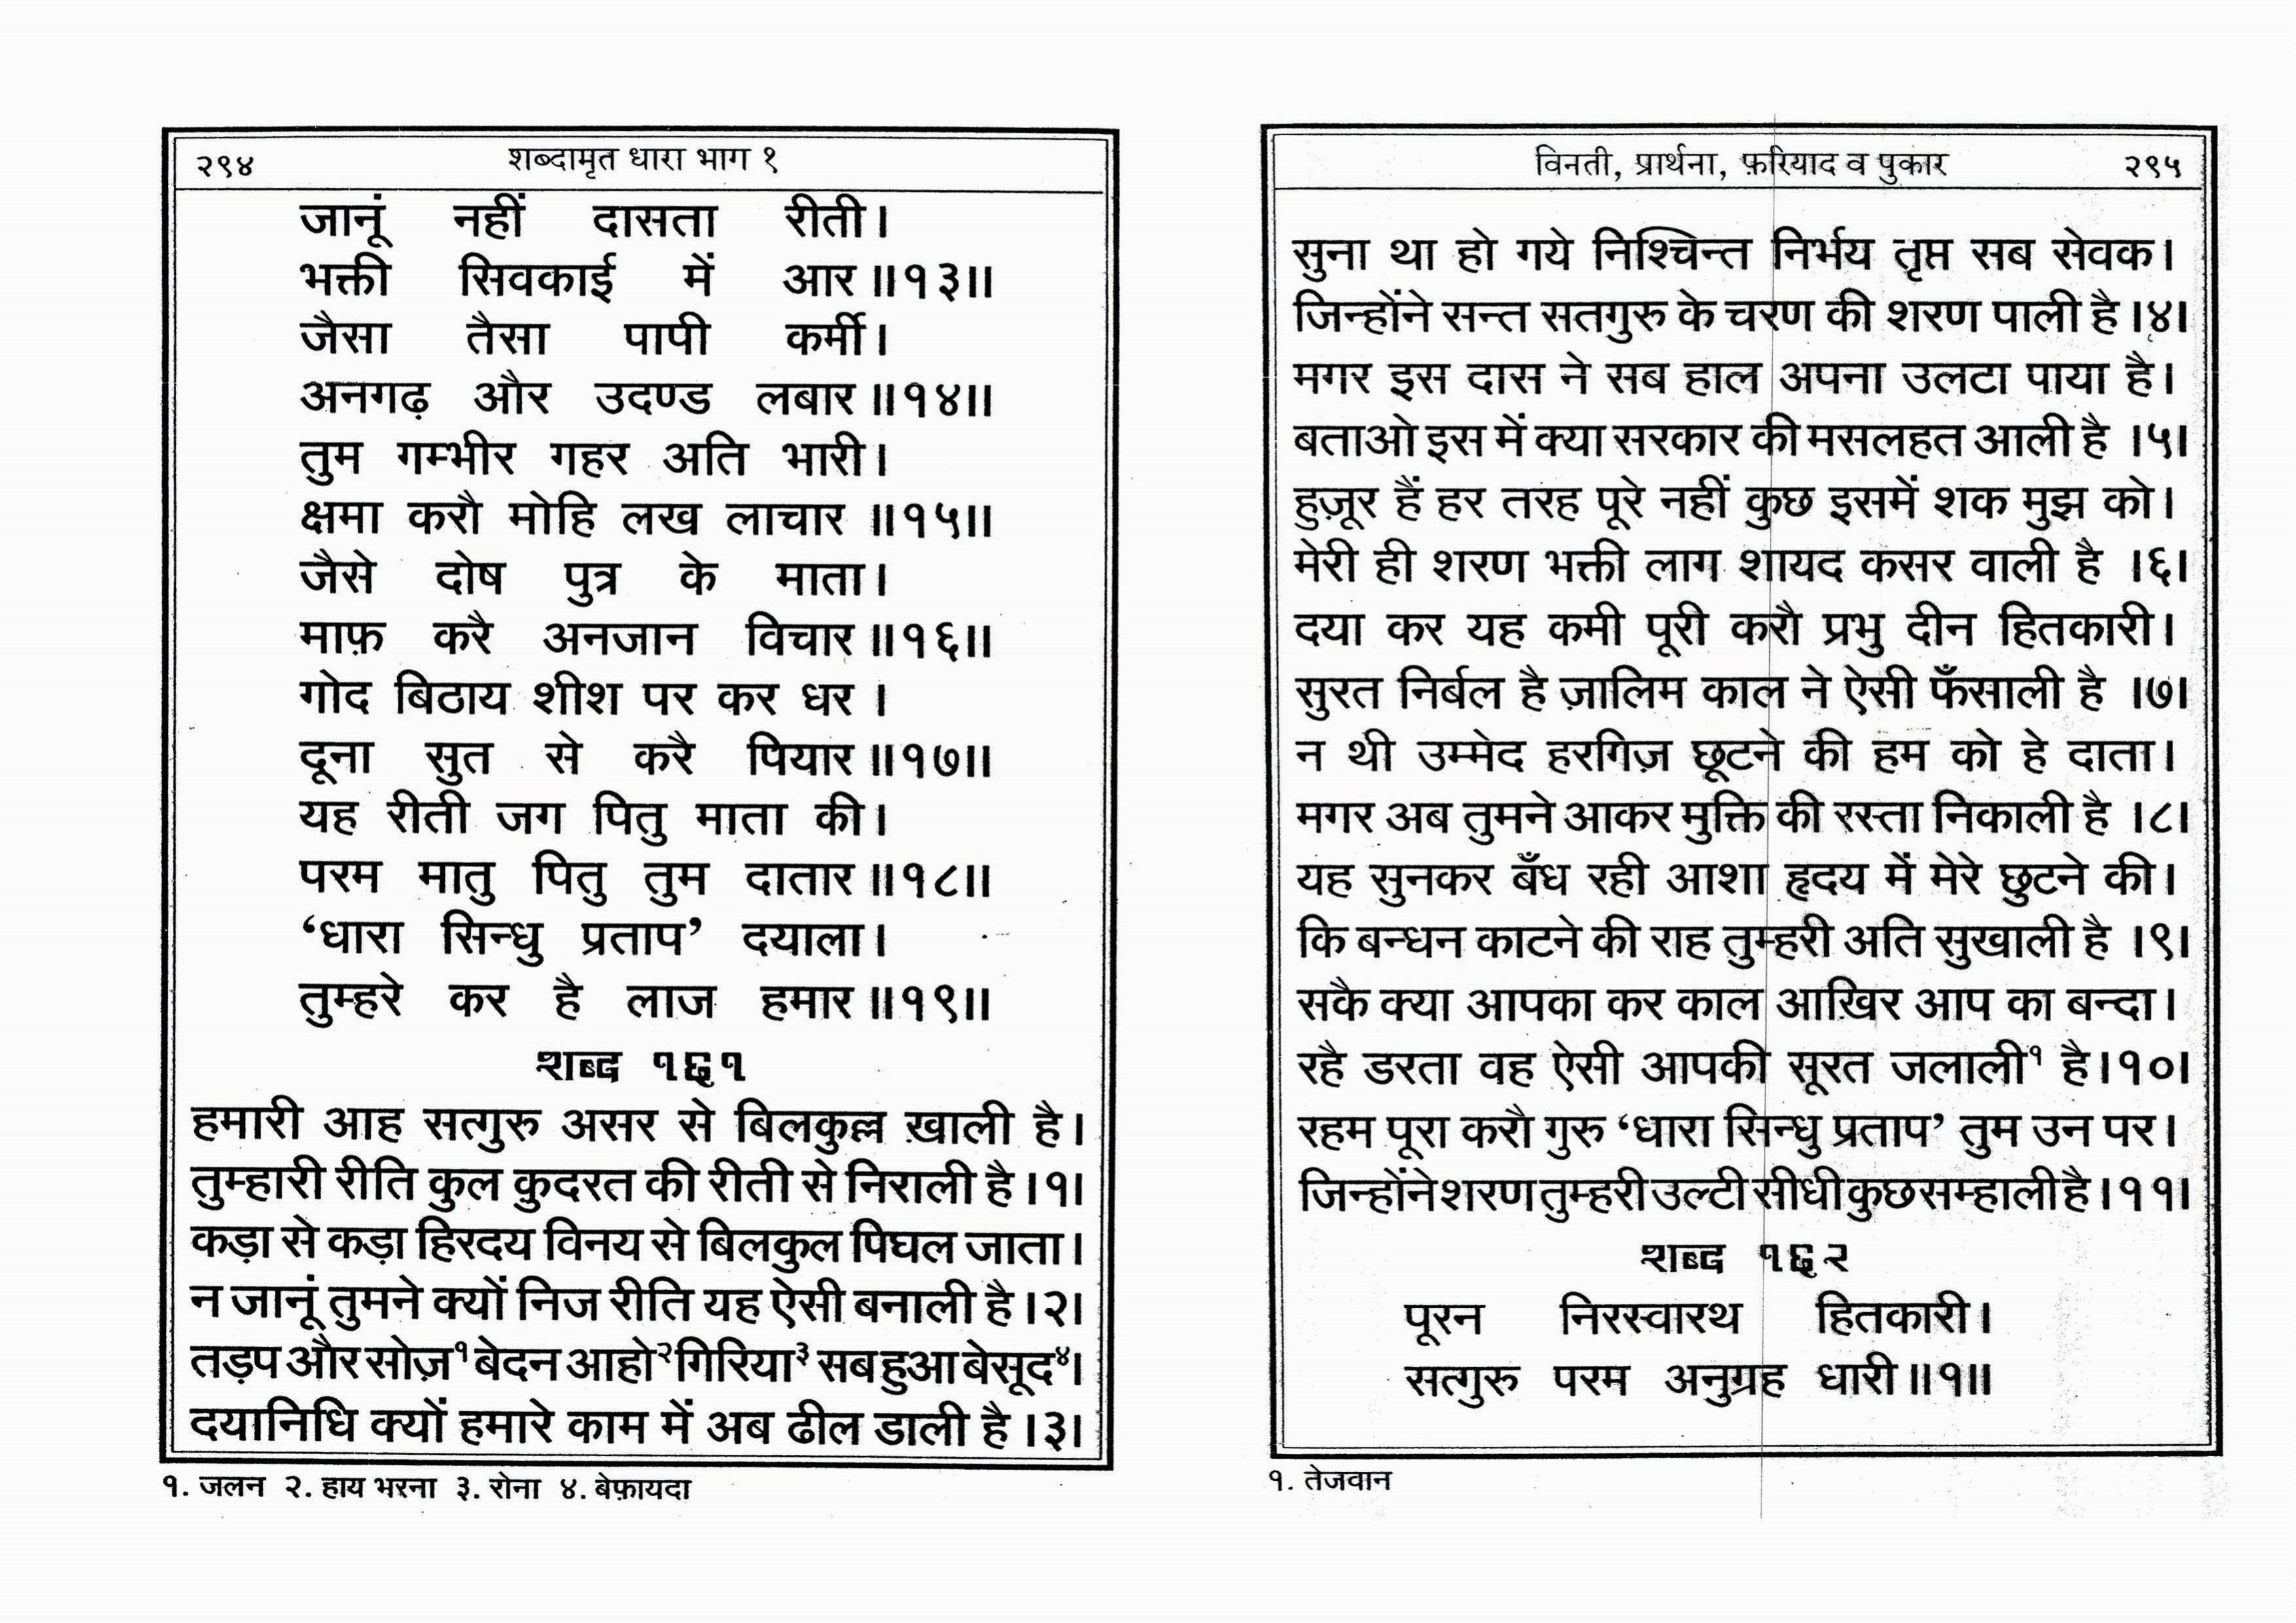 २९४ शब्दामृत धारा भाग १
जानूं नहीं दासता रीती।
भक्ती सिवकाई में आर॥१३॥
जैसा तैसा पापी कर्मी।
अनगढ़ और उदण्ड लबार॥१४॥
तुम गम्भीर गहर अति भारी।
क्षमा करौ मोहि लख लाचार ॥१५॥
जैसे दोष पुत्र के माता।
माफ़ करै अनजान विचार॥१६॥
गोद बिठाय शीश पर कर धर ।
दूना सुत से करै पियार॥१७॥
यह रीती जग पितु माता की।
परम मातु पितु तुम दातार॥१८॥
‘धारा सिन्धु प्रताप’ दयाला।
तुम्हरे कर है लाज हमार॥१९॥
शब्द १६१
हमारी आह सत्गुरु असर से बिलकुल्ल ख़ाली है।
तुम्हारी रीति कुल कुदरत की रीती से निराली है।१।
कड़ा से कड़ा हिरदय विनय से बिलकुल पिघल जाता।
न जानूं तुमने क्यों निज रीति यह ऐसी बनाली है।२।
तड़प और सोज़¹ बेदन आहो² गिरिया³ सब हुआ बेसूद⁴।
दयानिधि क्यों हमारे काम में अब ढील डाली है।३।
१. जलन २. हाय भरना ३. रोना ४. बेफ़ायदा
विनती, प्रार्थना, फ़रियाद व पुकार २९५
सुना था हो गये निश्चिन्त निर्भय तृप्त सब सेवक।
जिन्होंने सन्त सतगुरु के चरण की शरण पाली है।४।
मगर इस दास ने सब हाल अपना उलटा पाया है।
बताओ इस में क्या सरकार की मसलहत आली है ।५।
हुज़ूर हैं हर तरह पूरे नहीं कुछ इसमें शक मुझ को।
मेरी ही शरण भक्ती लाग शायद कसर वाली है ।६।
दया कर यह कमी पूरी करौ प्रभु दीन हितकारी।
सुरत निर्बल है ज़ालिम काल ने ऐसी फँसाली है ।७।
न थी उम्मेद हरगिज़ छूटने की हम को हे दाता।
मगर अब तुमने आकर मुक्ति की रस्ता निकाली है ।८।
यह सुनकर बँध रही आशा हृदय में मेरे छुटने की।
कि बन्धन काटने की राह तुम्हरी अति सुखाली है ।९।
सकै क्या आपका कर काल आख़िर आप का बन्दा।
रहै डरता वह ऐसी आपकी सूरत जलाली¹ है।१०।
रहम पूरा करौ गुरु ‘धारा सिन्धु प्रताप’ तुम उन पर।
जिन्होंने शरण तुम्हरी उल्टी सीधी कुछ सम्हाली है।११।
शब्द १६२
पूरन निरस्वारथ हितकारी।
सत्गुरु परम अनुग्रह धारी॥१॥
१. तेजवान